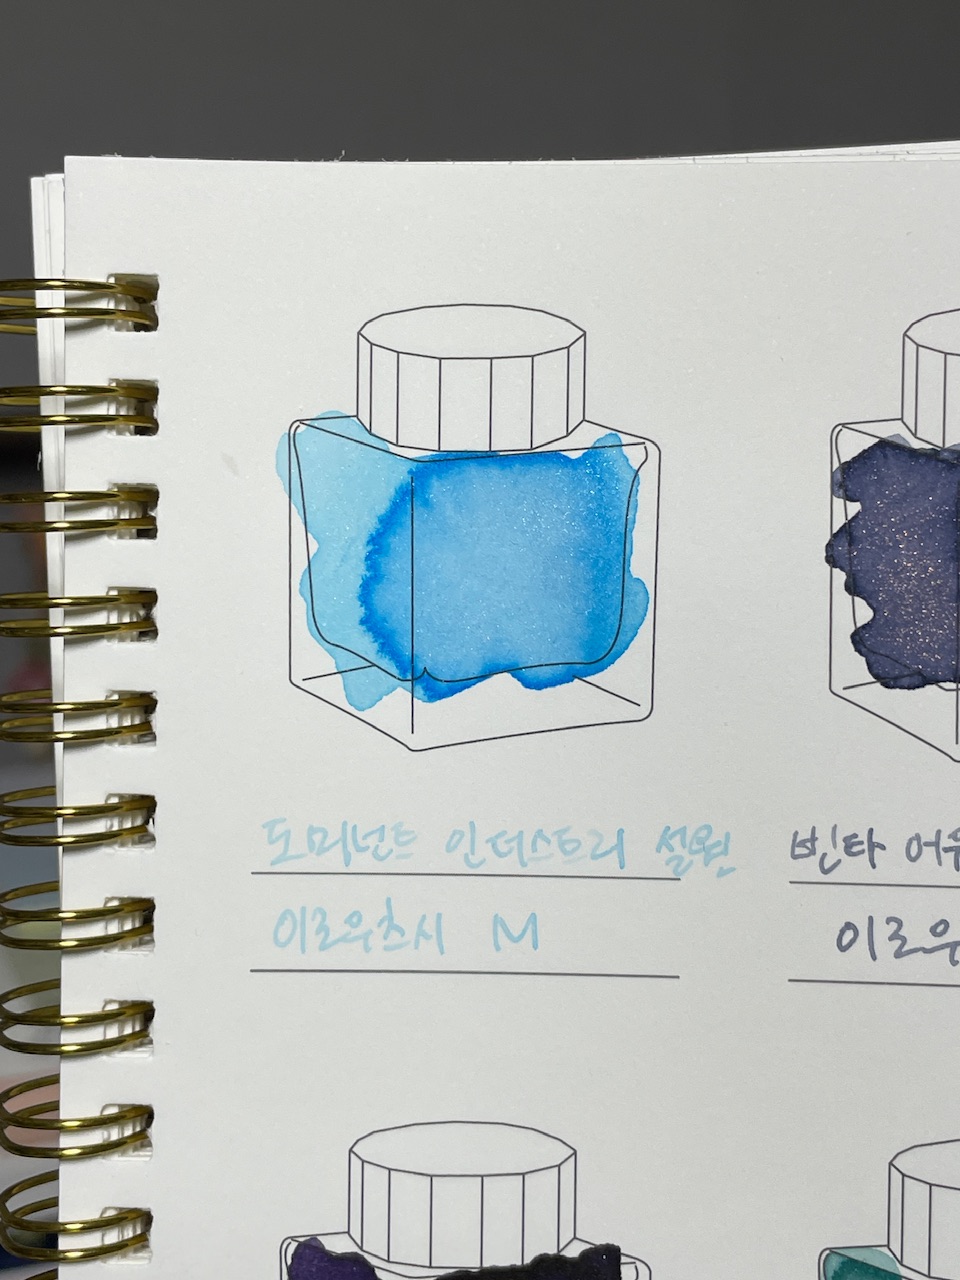 도미넌트 인더스트리 설원
이로우츠시 M
빈타 어
이로우